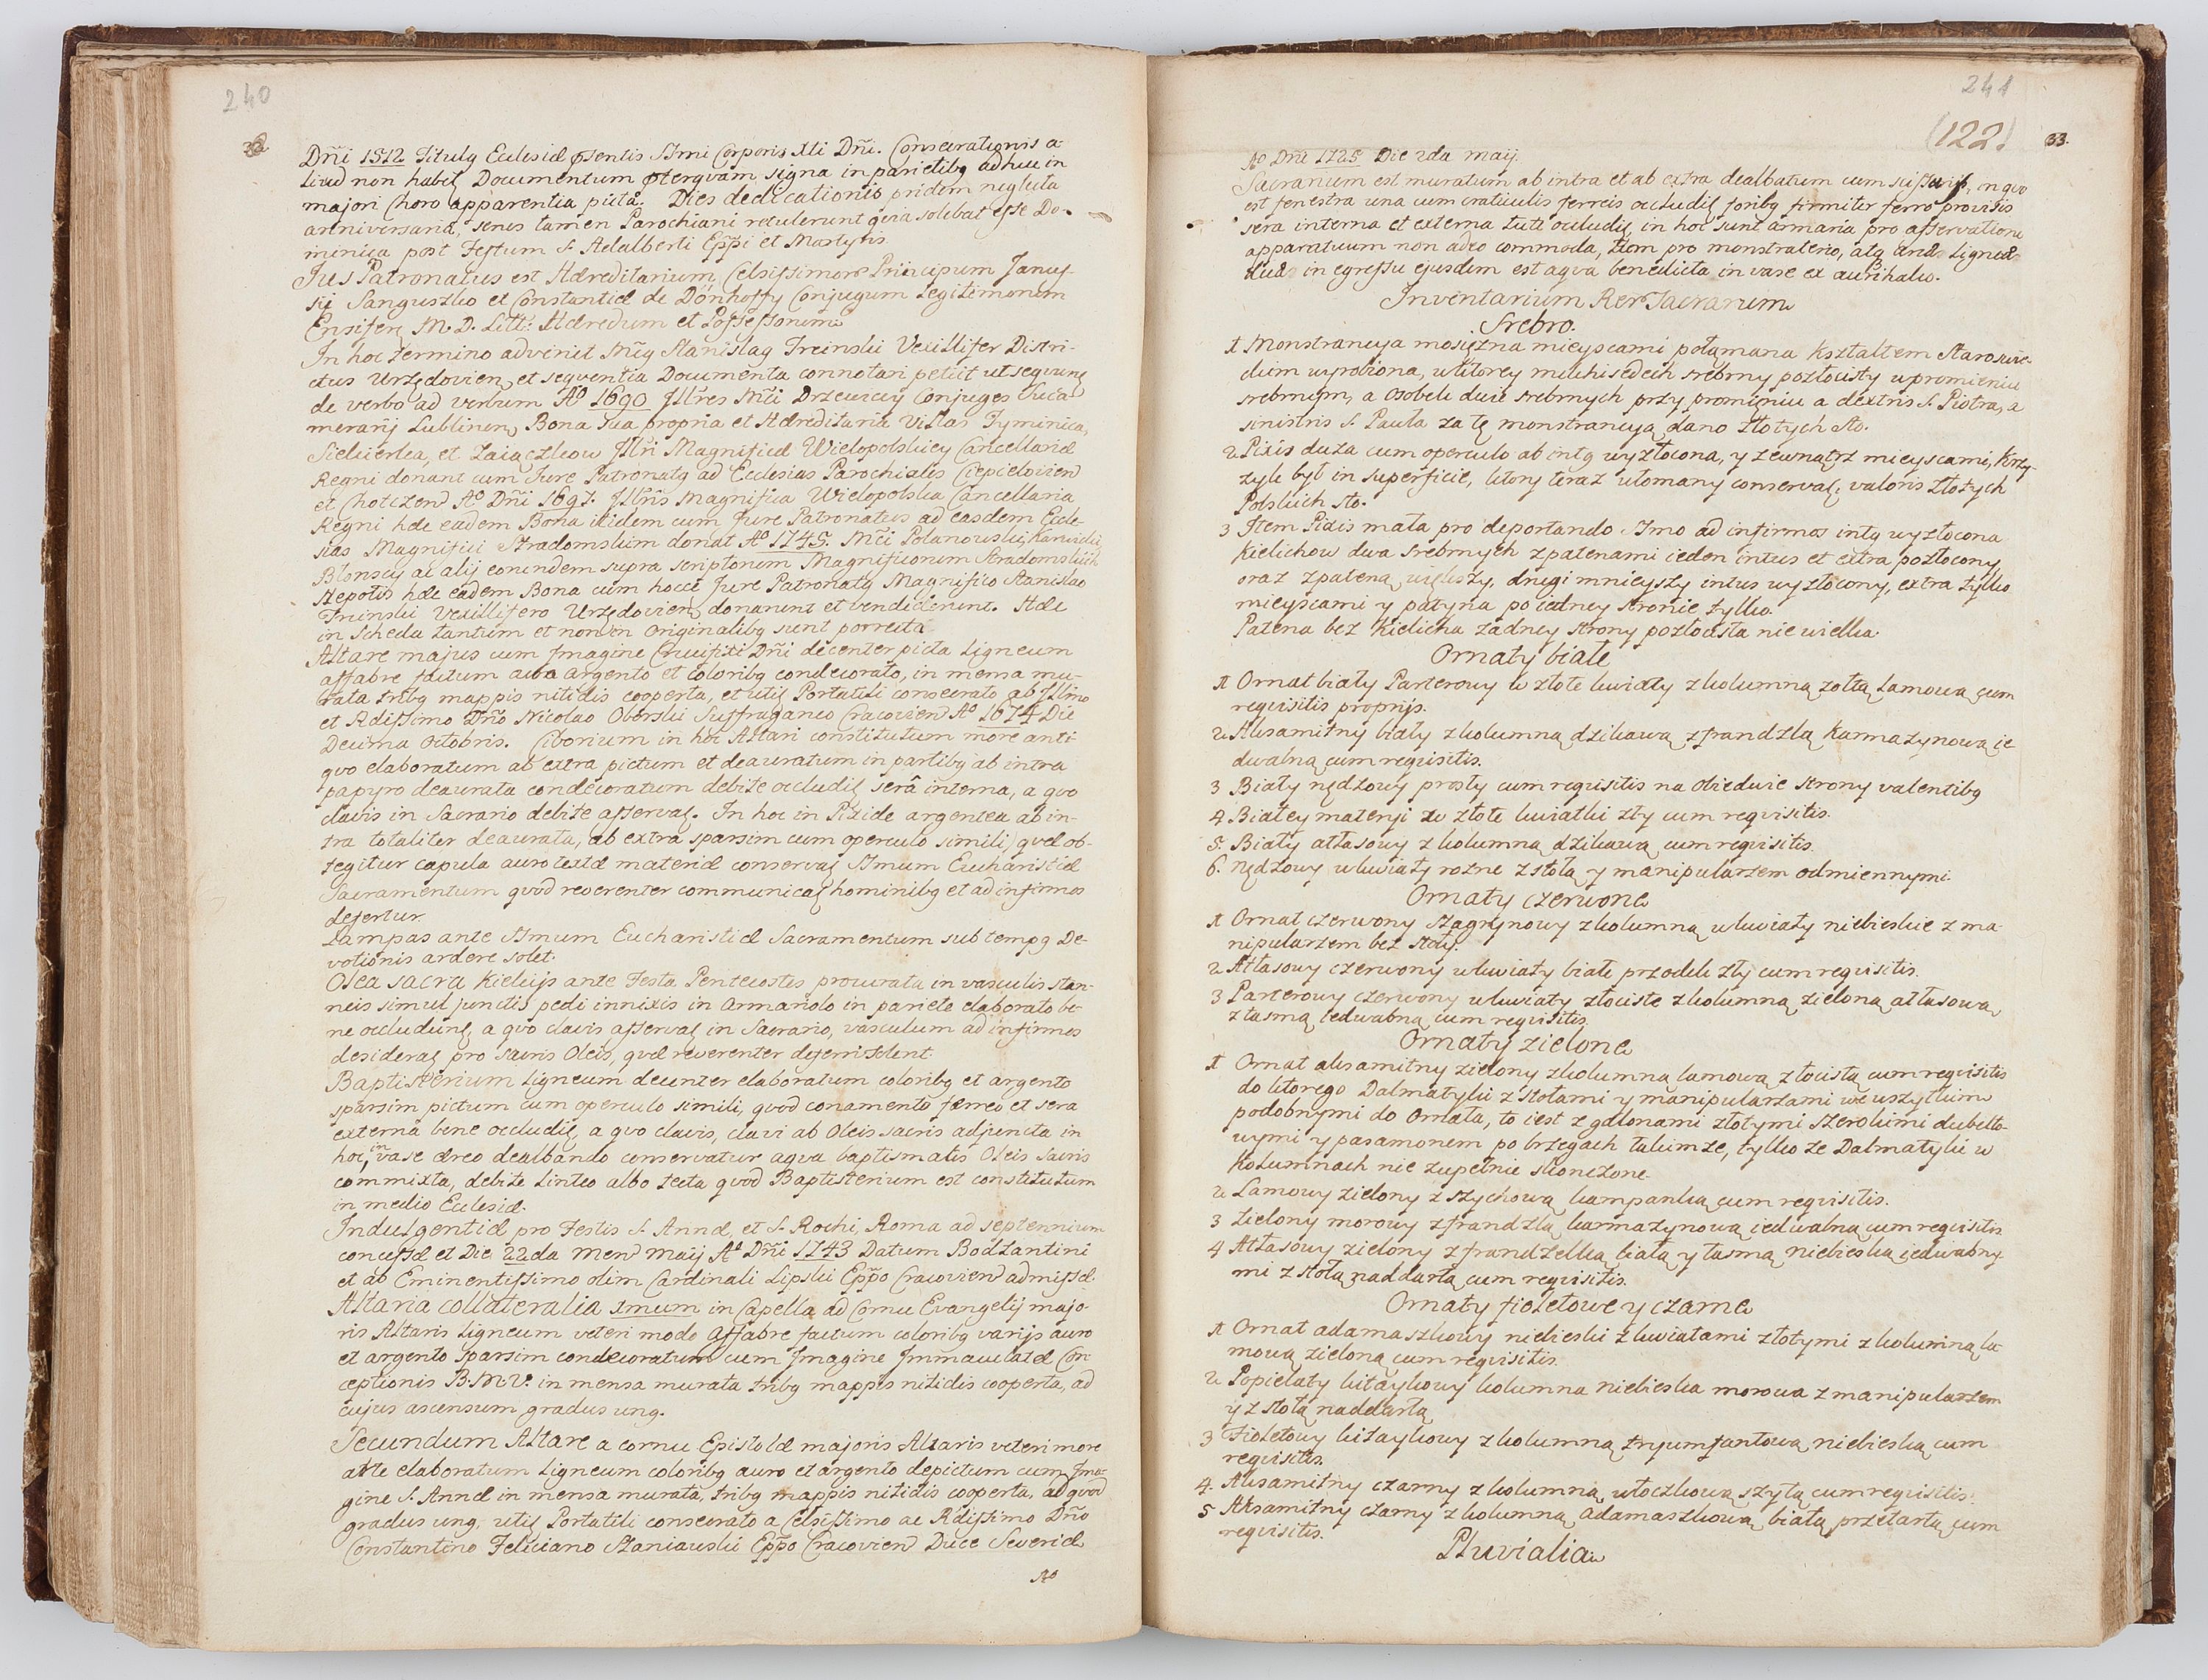 240
32
Dñi 1512 Tituly Ecclesiæ pñsentis SSmi Corporis Xti Dñi. Consecrationis a-
liud non habet Documentum pterqvam signa in parietibq adhuc in
majori Choro apparentia picta. Dies dedicationis pridem neglecta
anniversaria, senes tamen Parochiani retulerunt qvia solebat esse Do-
minica post Festum S. Adalberti Eppi et Martyris
Jus Patronatus est Hæreditarium Celsissimorum Principum Janus-
sii Sanguszko et Constantiæ de Dönhoffy Conjugum Legitimorum
Ensiferi M. D. Litt: Hæredum et Possessorum
In hoc termino advenit Mcq Stanislaq Treinski Vexillifer Distri-
ctus Urzędovien et seqventia Documenta connotari petiit ut seqvunt
de verbo ad verbum Aº 1690 Jllres Mci Drzewiccy Conjuges Succa-
merarij Lublinen Bona sua propria et Hæreditaria Villas Tyminica,
Siekierka, et Zaiączkow Jllri Magnificæ Wielopolskiey Cancellariæ
Regni donant cum Jure Patronatq ad Ecclesias Parochiales Ciepielovien
et Chotczen Aº Dñi 1697. Jllris Magnifica Wielopolska Cancellaria
Regni hæc eadem Bona itidem cum Jure Patronatus ad easdem Eccle-
sias Magnifici Stradomskim donat Aº 1745. Mci Polanowskij, Karwickij
Blonscy ac alij eorundem supra scriptorum Magnificorum Stradomskich
Nepotes hæc eadem Bona cum hocce Jure Patronatq Magnifico Stanislao
Treinski Vexillifero Urzędovien donarunt et vendiderunt. Hæc
in scheda tantum et non in Originalibq sunt porrecta
Altare majus cum Jmagine Crucifixi Dñi decenter picta Ligneum
affabre factum auro argento et coloribq condecorato, in mensa mu-
rata tribq mappis nitidis cooperta, et utiq Portatili consecrato ab Jllmo
et Rdissimo Dño Nicolao Oborski Suffraganeo Cracovien Aº 1674 Die
Decima Octobris. Ciborium in hoc Altari constitutum more anti-
qvo elaboratum ab extra pictum et deauratum in partibq ab intra
papyro deaurata condecoratum debite occludit serâ interna, a qvo
clavis in Sacrario debite asservat. In hoc in Pixide argentea ab in-
tra totaliter deaurata, ab extra sparsim cum operculo simili, qvæ ob-
tegitur capula auro textæ materiæ conservat SSmum Eucharistiæ
Sacramentum qvod reverenter communicat hominibq et ad infirmos
defertur.
Lampas ante SSmum Eucharistiæ Sacramentum sub tempq De-
votionis ardere solet.
Olea sacra Kielcijs ante Festa Pentecostes procurata in vasculis stan-
neis simul junctis pedi innixis in Armariolo in pariete elaborato be-
ne occludunt, a qvo clavis asservat in Sacrario, vasculum ad infirmos
desiderat pro sacris Oleis, qvæ reverenter deferri solent.
Baptisterium Ligneum decenter elaboratum coloribq et argento
sparsim pictum cum operculo simili, qvod conamento ferreo et sera
externa bene occludit, a qvo clavis, clavi ab Oleis sacris adjuncta in
hoc, in vase æreo dealbando conservatur aqva baptismatis Oleis sacris
commixta, debite Linteo albo tecta qvod Baptisterium est constitutum
in medio Ecclesiæ.
Indulgentiæ pro Festis S. Annæ, et S. Rochi, Roma ad septennium
concessæ et Die 22da Men Maij Aº Dñi 1743 Datum Bodzantini
et ab Eminentissimo olim Cardinali Lipski Eppo Cracovien admissæ.
Altaria collateralia 1mum in Capella ad Cornu Evangelij majo-
ris Altaris Ligneum veteri modo affabre factum coloribq varijs auro
et argento sparsim condecoratum cum Jmagine Jmmaculatæ Con-
ceptionis B.M.V. in mensa murata tribq mappis nitidis cooperta, ad
cujus ascensum gradus unq.
Secundum Altare a cornu Epistolæ majoris Altaris veteri more
arte elaboratum Ligneum coloribq auro et argento depictum cum Jma-
gine S. Annæ in mensa murata, tribq mappis nitidis cooperta, ad qvod
gradus unq, utiq Portatili consecrato a Celsissimo ac Rdissimo Dño
Constantino Feliciano Szaniawski Eppo Cracovien Duce Severiæ
Aº
241
(122)
33.
Aº Dñi 1725 Die 2da Maij.
Sacrarium est muratum ab intra et ab extra dealbatum cum scissuris, in qvo
est fenestra una cum craticulis ferreis occludit foribq firmiter ferro provisis
sera interna et externa tute occludit, in hoc sunt armaria pro asservatione
apparatuum non adeo commoda, tum pro monstraterio, atq Arcæ Ligneæ
duæ in egressu ejusdem est aqva benedicta in vase ex aurihalco.
Inventarium Rer Sacrarum
Srebro.
1 Monstrancya mosiężna mieyscami połąmana kształtem Staroświe-
ckim wyrobiona, w ktorey melchisedech srebrny pozłocisty w promieniu
srebrnym, a osobek dwie srebrnych przy promieniu a dextris S. Piotra, a
sinistris S. Pawła za tę monstrancyą dano złotych sto.
2 Pixis duża cum operculo ab intq wyzłocona, y zewnątrz mieyscami, krzy-
zyk był in superficie, ktory teraz ułomany conservat, valoris złotych
Polskich sto.
3 Item Pixis mała pro deportando SSmo ad infirmos intq wyzłocona
Kielichow dwa srebrnych z patenami ieden intus et extra pozłocony,
oraz z pateną większy, drugi mnieyszy intus wyzłocony, extra tylko
mieyscami y patyna po iedney stronie tylko.
Patena bez Kielicha zadney strony pozłocista nie wielka
Ornaty białe
1 Ornat biały Parterowy w złote kwiaty z kolumną zołtą Lamową cum
reqvisitis proprijs.
2 Aksamitny biały z kolumną dzikawą z frandzlą karmazynową ie-
dwabną cum reqvisitis.
3 Biały nędzowy prosty cum reqvisitis na obiedwie strony valentibq
4 Białey materyi w złote kwiatki zły cum reqvisitis.
5. Biały atłasowy z kolumną dzikawą cum reqvisitis.
6. Nędzowy w kwiaty rozne z stołą y manipularzem odmiennymi.
Ornaty czerwone
1 Ornat czerwony szagrynowy z kolumną w kwiaty niebieskie z ma-
nipularzem bez stoły.
2 Atłasowy czerwony w kwiaty białe przodek zły cum reqvisitis.
3 Parterowy czerwony w kwiaty złociste z kolumną zieloną atłasową
z tasmą iedwabną cum reqvisitis.
Ornaty zielone
1 Ornat aksamitny zielony z kolumną lamową złocistą cum reqvisitis
do ktorego Dalmatyki z stołami y manipularzami we wszytkim
podobnymi do Ornata, to iest z galonami złotymi szerokimi dubelto-
wymi y pasamonem po brzegach takimze, tylko ze Dalmatyki w
Kolumnach nie zupełnie skonczone.
2 Lamowy zielony z szychową kampanką cum reqvisitis.
3 Zielony morowy z frandzlą karmazynową iedwabną cum reqvisitis
4 Atłasowy zielony z frandzelką białą y tasmą niebieską iedwabny-
mi z stołą naddartą cum reqvisitis.
Ornaty fioletowe y czarne
1 Ornat adamaszkowy niebieski z kwiatami złotymi z kolumną la-
mową zieloną cum reqvisitis.
2 Popielaty kitaykowy kolumna niebieska morowa z manipularzem
y z stołą naddartą
3 Fioletowy kitaykowy z kolumną tryumfantową niebieską cum
reqvisitis.
4. Aksamitny czarny z kolumną włoczkową szytą cum reqvisitis.
5 Aksamitny czarny z kolumną Adamaszkową białą przetartą cum
reqvisitis.
Pluvialia